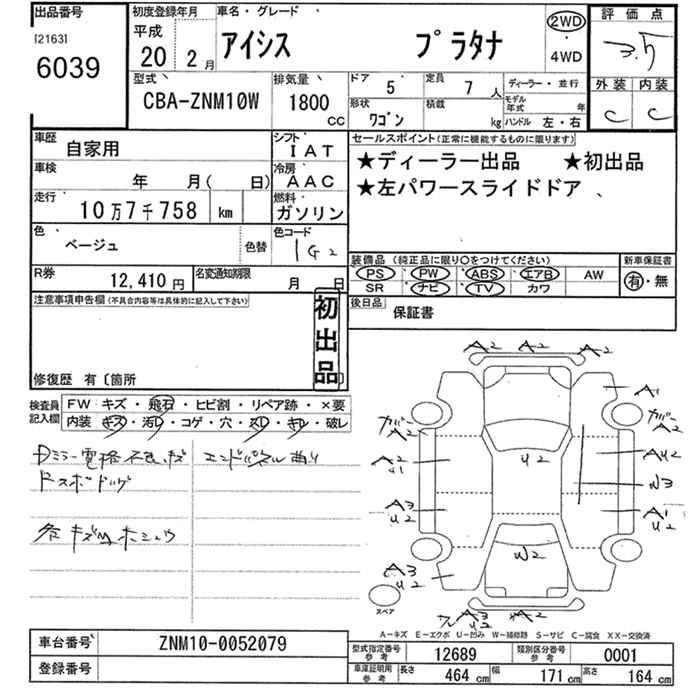 出品番号
[2163]
6039
初度登録年月
平成
20 2月
車名・グレード
アイシス プラタナ
2WD
・
4WD
評価点
3.5
外装 内装
C C
型式
CBA-ZNM10W
排気量
1800
CC
ドア 5
定員 7人
形状 ワゴン
積載 kg
ディーラー・並行
モデル年式 年
ハンドル 左・右
車歴 自家用
シフト IAT
車検 年 月( 日)
冷房 AAC
走行 10万7千758 km
燃料 ガソリン
色 ベージュ
色替
色コード 1G2
R券 12,410円
名変通知期限 月 日
セールスポイント(正常に機能するものに限ります)
★ディーラー出品 ★初出品
★左パワースライドドア
装備品(純正品に限り○をつけてください)
PS PW ABS エアB AW
SR ナビ TV カワ
新車保証書
有・無
後日品 保証書
注意事項申告欄(不具合内容等は具体的に記入して下さい)
初出品
修復歴 有〔箇所 〕
検査員記入欄
FW キズ・飛石・ヒビ割・リペア跡・×要
内装 キズ・汚レ・コゲ・穴・スレ・キレ・破レ
Dミラー電格不良、キズ
エンドパネル曲り
各キズ凹ホシュウ
A2 A2 A2
A1
カバー A2
カバー A2
A2 U1
U2
AU2
W3
A3 U2
A1 U2
W2
A3 U2
A3 U2
スペア
A-キズ E-エクボ U-凹み W-補修跡 S-サビ C-腐食 XX-交換済
車台番号 ZNM10-0052079
登録番号
型式指定番号参考 12689
類別区分番号参考 0001
車庫証明用参考
長さ 464 cm
幅 171 cm
高さ 164 cm